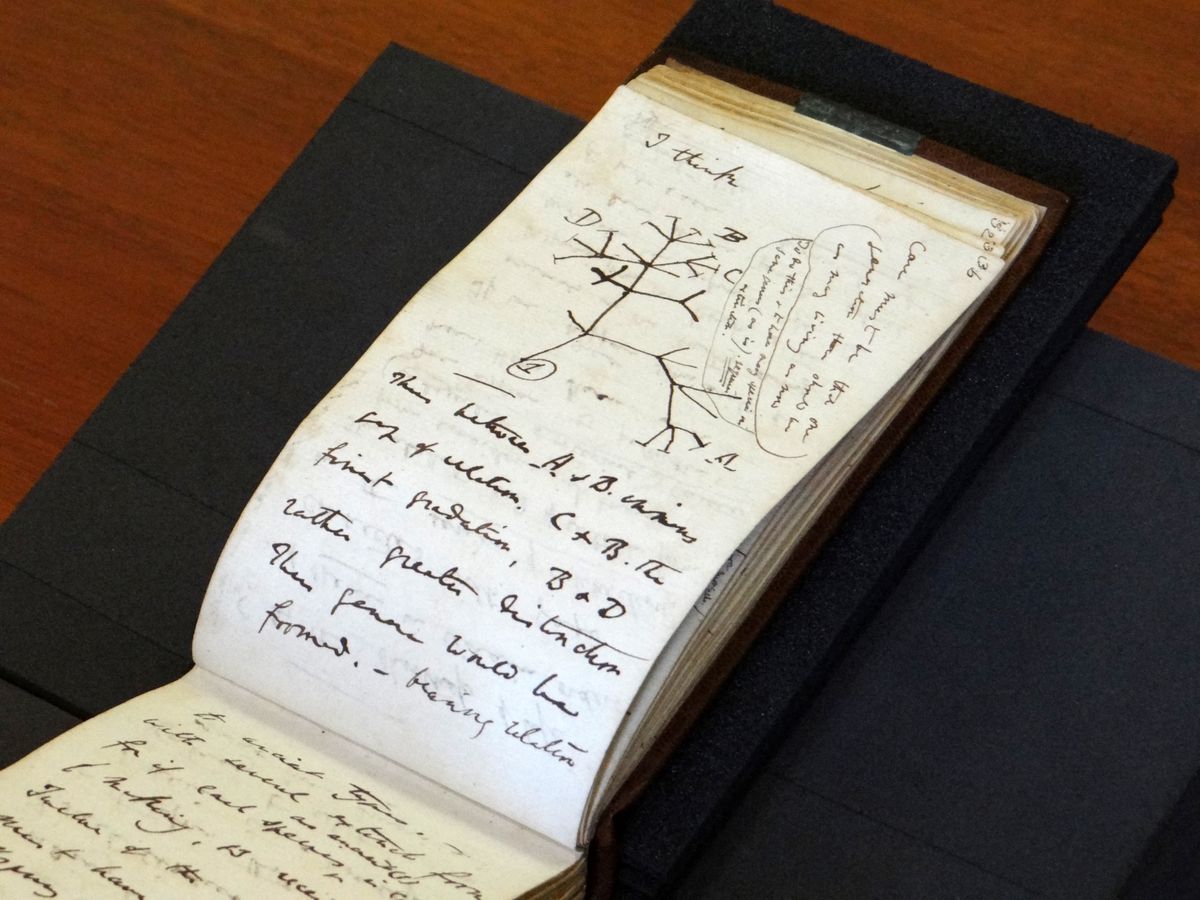 I think
36
D
B
C
1
A
Case must be that one
generation then should be
as many living as now
To do this & to have many species in
same genus (as is). requires
extinction.
Thus between A & B. immense
gap of relation. C & B. the
finest gradation, B & D
rather greater distinction
Thus genera would be
formed. — bearing relation
to ancient types. —
with several extinct forms
for if each species
making, 13 recent
Twelve of the
must have